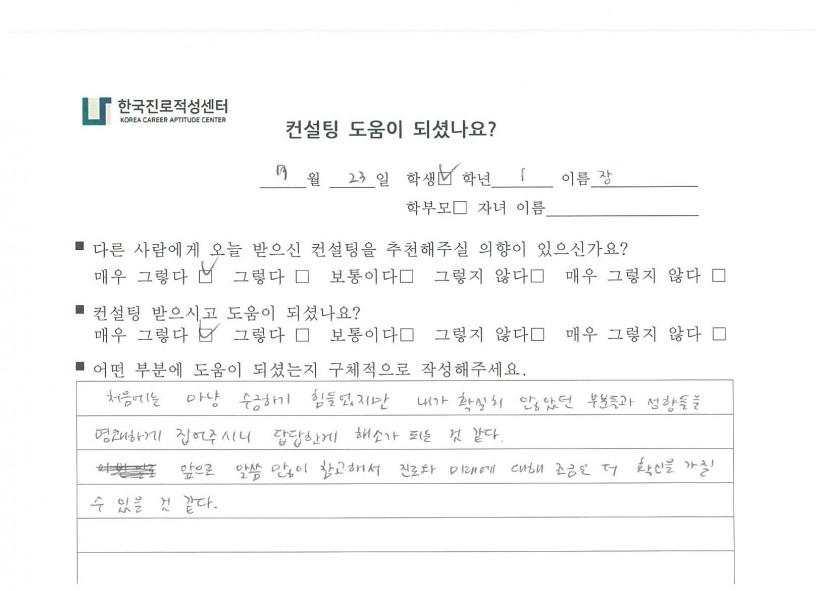 한국진로적성센터
KOREA CAREER APTITUDE CENTER
컨설팅 도움이 되셨나요?
월 23일 학생☑ 학년 1 이름 장
학부모□ 자녀 이름
■ 다른 사람에게 오늘 받으신 컨설팅을 추천해주실 의향이 있으신가요?
매우 그렇다 ☑ 그렇다 □ 보통이다□ 그렇지 않다□ 매우 그렇지 않다 □
■ 컨설팅 받으시고 도움이 되셨나요?
매우 그렇다 ☑ 그렇다 □ 보통이다□ 그렇지 않다□ 매우 그렇지 않다 □
■ 어떤 부분에 도움이 되셨는지 구체적으로 작성해주세요.
처음에는 마냥 수긍하기 힘들었지만 내가 확실치 않았던 부분들과 성향들을
명쾌하게 집어주시니 답답한게 해소가 되는 것 같다.
앞으로 말씀 많이 참고해서 진로와 미래에 대해 조금은 더 확신을 가질
수 있을 것 같다.